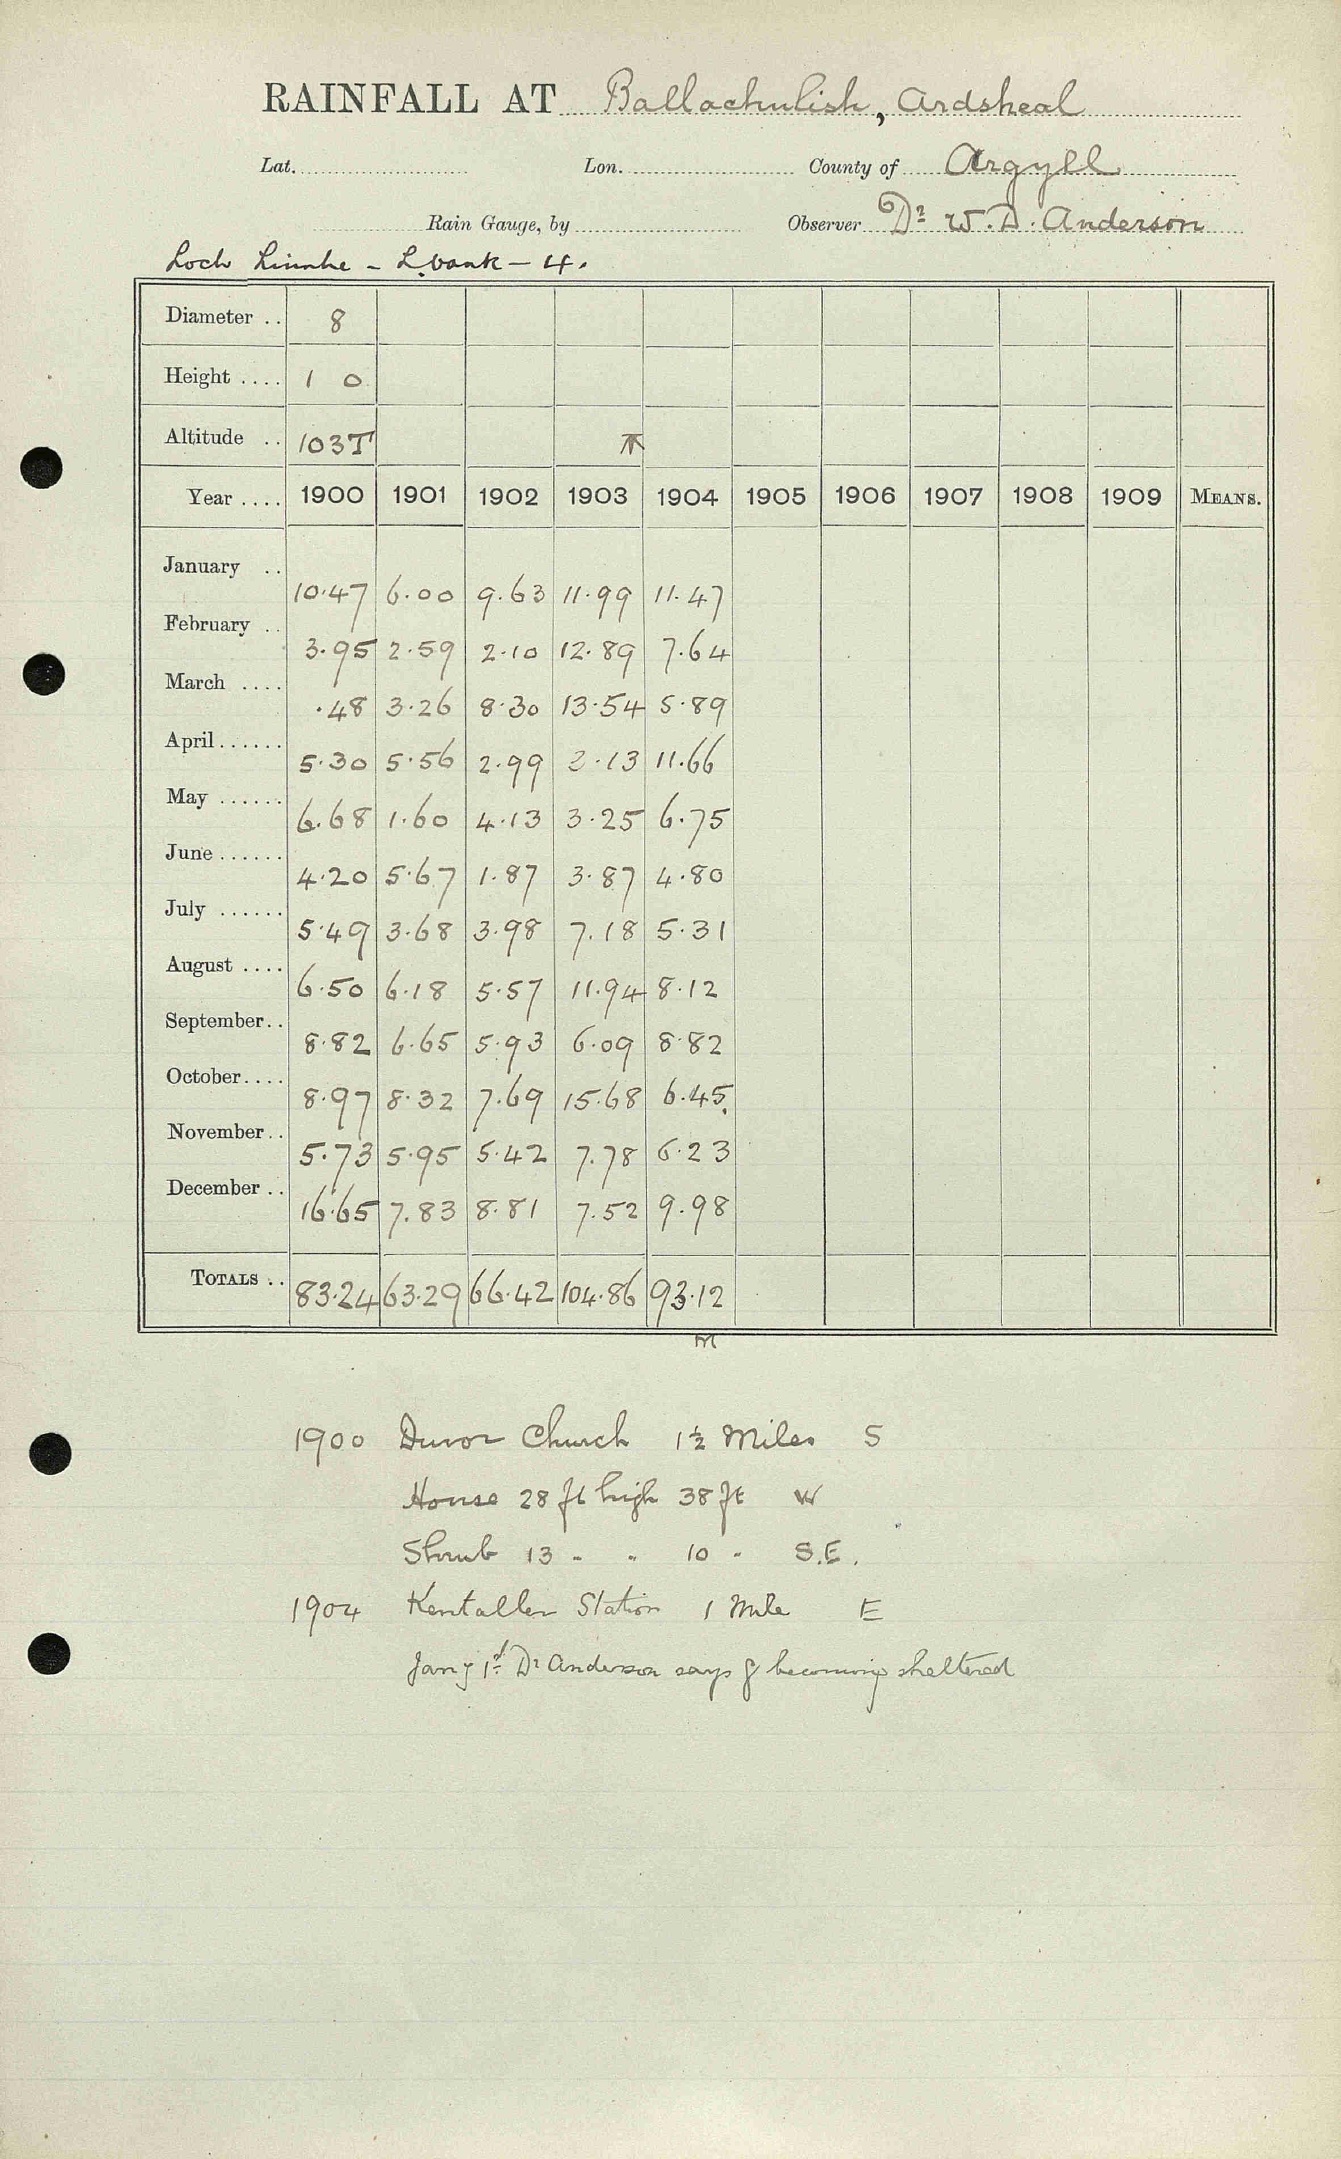 RAINFALL AT Ballachulish, Ardsheal
Lat. Lon. County of Argyll
Rain Gauge, by Observer Dr W. D. Anderson
Loch Linnhe - L. bank - 4.
Diameter .. 8
Height .... 1 0
Altitude .. 103T
Year .... 1900 1901 1902 1903 1904 1905 1906 1907 1908 1909 MEANS.
January .. 10.47 6.00 9.63 11.99 11.47
February .. 3.95 2.59 2.10 12.89 7.64
March .... .48 3.26 8.30 13.54 5.89
April ...... 5.30 5.56 2.99 3.13 11.66
May ...... 6.68 1.60 4.13 3.25 6.75
June ...... 4.20 5.67 1.87 3.87 4.80
July ...... 5.49 3.68 3.98 7.18 5.31
August .... 6.50 6.18 5.57 11.94 8.12
September.. 8.82 6.65 5.93 6.09 8.82
October.... 8.97 8.32 7.69 15.68 6.45
November.. 5.73 5.95 5.42 7.78 6.23
December .. 16.65 7.83 8.81 7.52 9.98
TOTALS .. 83.24 63.29 66.42 104.86 93.12
m
1900 Duror Church 1½ Miles S
House 28 ft high 38 ft W
Shrub 13 " " 10 " S.E.
1904 Kentallen Station 1 Mile E
Jany 1st Dr Anderson says g becoming sheltered